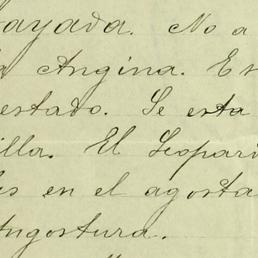 ayada. No a
Angina. Es
estado. Se esta
illa. El Leopar
es en el agosta
Angostura.